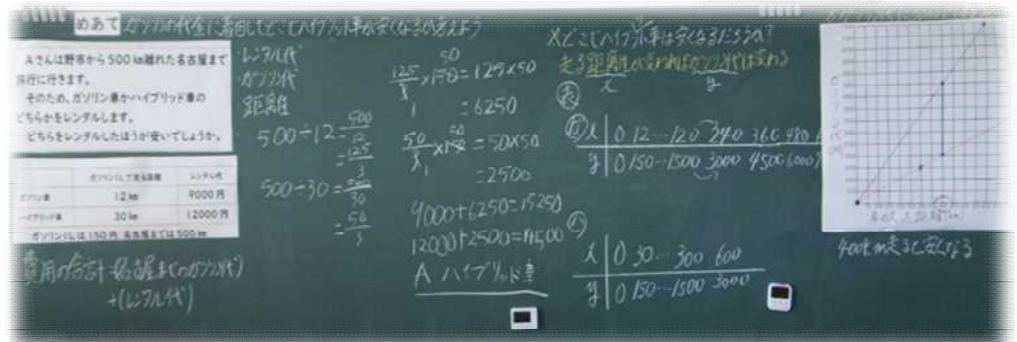 めあて ガソリンの代金に着目してどこでハイブリット車が安くなるか考えよう
Aさんは野市から500km離れた名古屋まで
旅行に行きます。
そのため、ガソリン車かハイブリッド車の
どちらかをレンタルします。
どちらをレンタルしたほうが安いでしょうか。
ガソリン1Lで走る距離 レンタル代
ガソリン車 12km 9000円
ハイブリッド車 30km 12000円
ガソリン1Lは150円 名古屋までは500km
費用の合計=(名古屋までのガソリン代)
+(レンタル代)
・レンタル代
・ガソリン代
距離
500÷12=500/12
=125/3
500÷30=500/30
=50/3
125/3×150=125×50
=6250
50/3×150=50×50
=2500
9000+6250=15250
12000+2500=14500
A ハイブリット車
どこでハイブリット車は安くなるだろうか?
走る距離が変わればガソリン代は変わる
x y
表
x 0 12…120 240 360 480
y 0 150…1500 3000 4500 6000
x 0 30…300 600
y 0 150…1500 3000
400km走ると安くなる